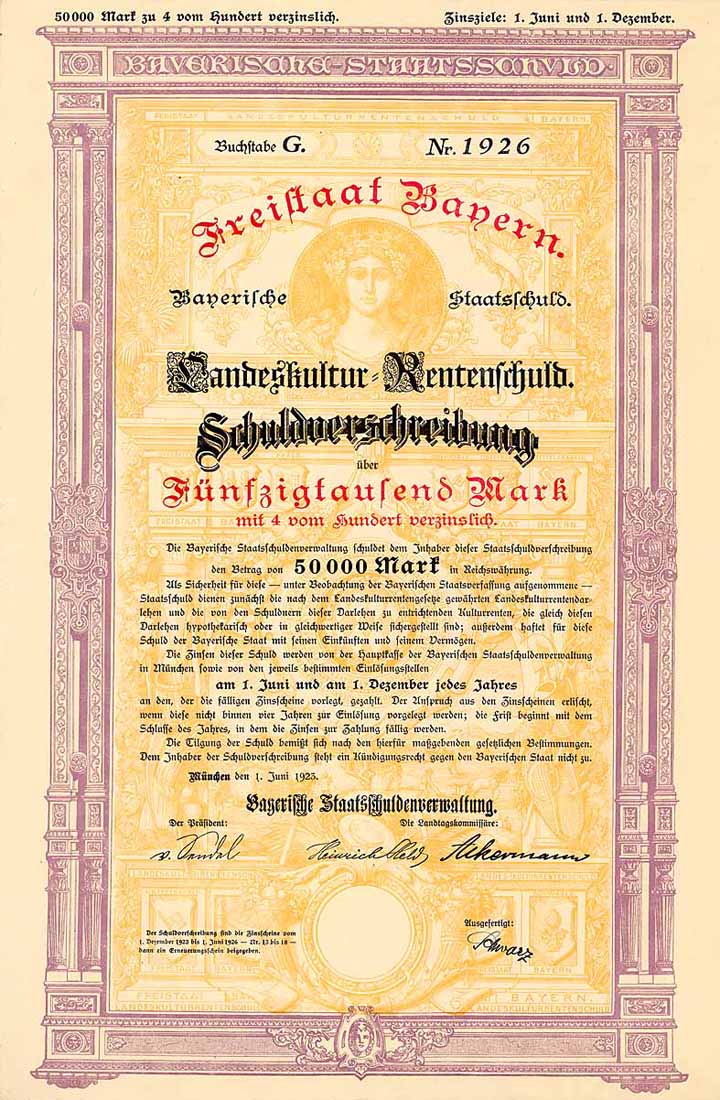 50000 Mark zu 4 vom Hundert verzinslich. Zinsziele: 1. Juni und 1. Dezember.
BAYERISCHE-STAATSSCHVLD.
FREISTAAT LANDESKULTURRENTENSCHULD BAYERN.
Buchstabe G. Nr. 1926
Freistaat Bayern.
Bayerische Staatsschuld.
Landeskultur-Rentenschuld.
Schuldverschreibung
über
Fünfzigtausend Mark
mit 4 vom Hundert verzinslich.
Die Bayerische Staatsschuldenverwaltung schuldet dem Inhaber dieser Staatsschuldverschreibung
den Betrag von 50000 Mark in Reichswährung.
Als Sicherheit für diese — unter Beobachtung der Bayerischen Staatsverfassung aufgenommene —
Staatsschuld dienen zunächst die nach dem Landeskulturrentengesetze gewährten Landeskulturrentendar-
lehen und die von den Schuldnern dieser Darlehen zu entrichtenden Kulturrenten, die gleich diesen
Darlehen hypothekarisch oder in gleichwertiger Weise sichergestellt sind; außerdem haftet für diese
Schuld der Bayerische Staat mit seinen Einkünften und seinem Vermögen.
Die Zinsen dieser Schuld werden von der Hauptkasse der Bayerischen Staatsschuldenverwaltung
in München sowie von den jeweils bestimmten Einlösungsstellen
am 1. Juni und am 1. Dezember jedes Jahres
an den, der die fälligen Zinscheine vorlegt, gezahlt. Der Anspruch aus den Zinscheinen erlischt,
wenn diese nicht binnen vier Jahren zur Einlösung vorgelegt werden; die Frist beginnt mit dem
Schlusse des Jahres, in dem die Zinsen zur Zahlung fällig werden.
Die Tilgung der Schuld bemißt sich nach den hierfür maßgebenden gesetzlichen Bestimmungen.
Dem Inhaber der Schuldverschreibung steht ein Kündigungsrecht gegen den Bayerischen Staat nicht zu.
München den 1. Juni 1923.
Bayerische Staatsschuldenverwaltung.
Der Präsident: Die Landtagskommissäre:
Heinrich Held Ackermann
Ausgefertigt:
Schwarz
Der Schuldverschreibung sind die Zinsscheine vom
1. Dezember 1923 bis 1. Juni 1926 — Nr. 13 bis 18 —
dann ein Erneuerungsschein beigegeben.
FREISTAAT BAYERN.
LANDESKULTURRENTENSCHULD